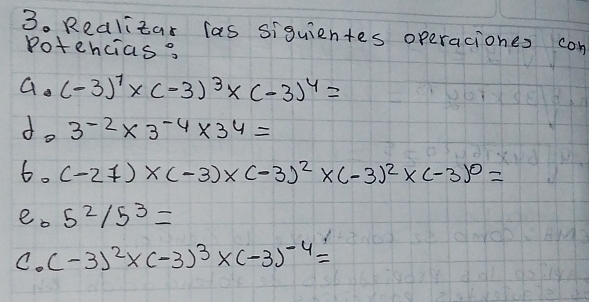 3. Realizar las siguientes operaciones con
Potencias:
a. (-3)¹ x (-3)³ x (-3)⁴ =
d. 3⁻² x 3⁻⁴ x 3⁴ =
b. (-27) x (-3) x (-3)² x (-3)² x (-3)⁰ =
e. 5² / 5³ =
c. (-3)² x (-3)³ x (-3)⁻⁴ =